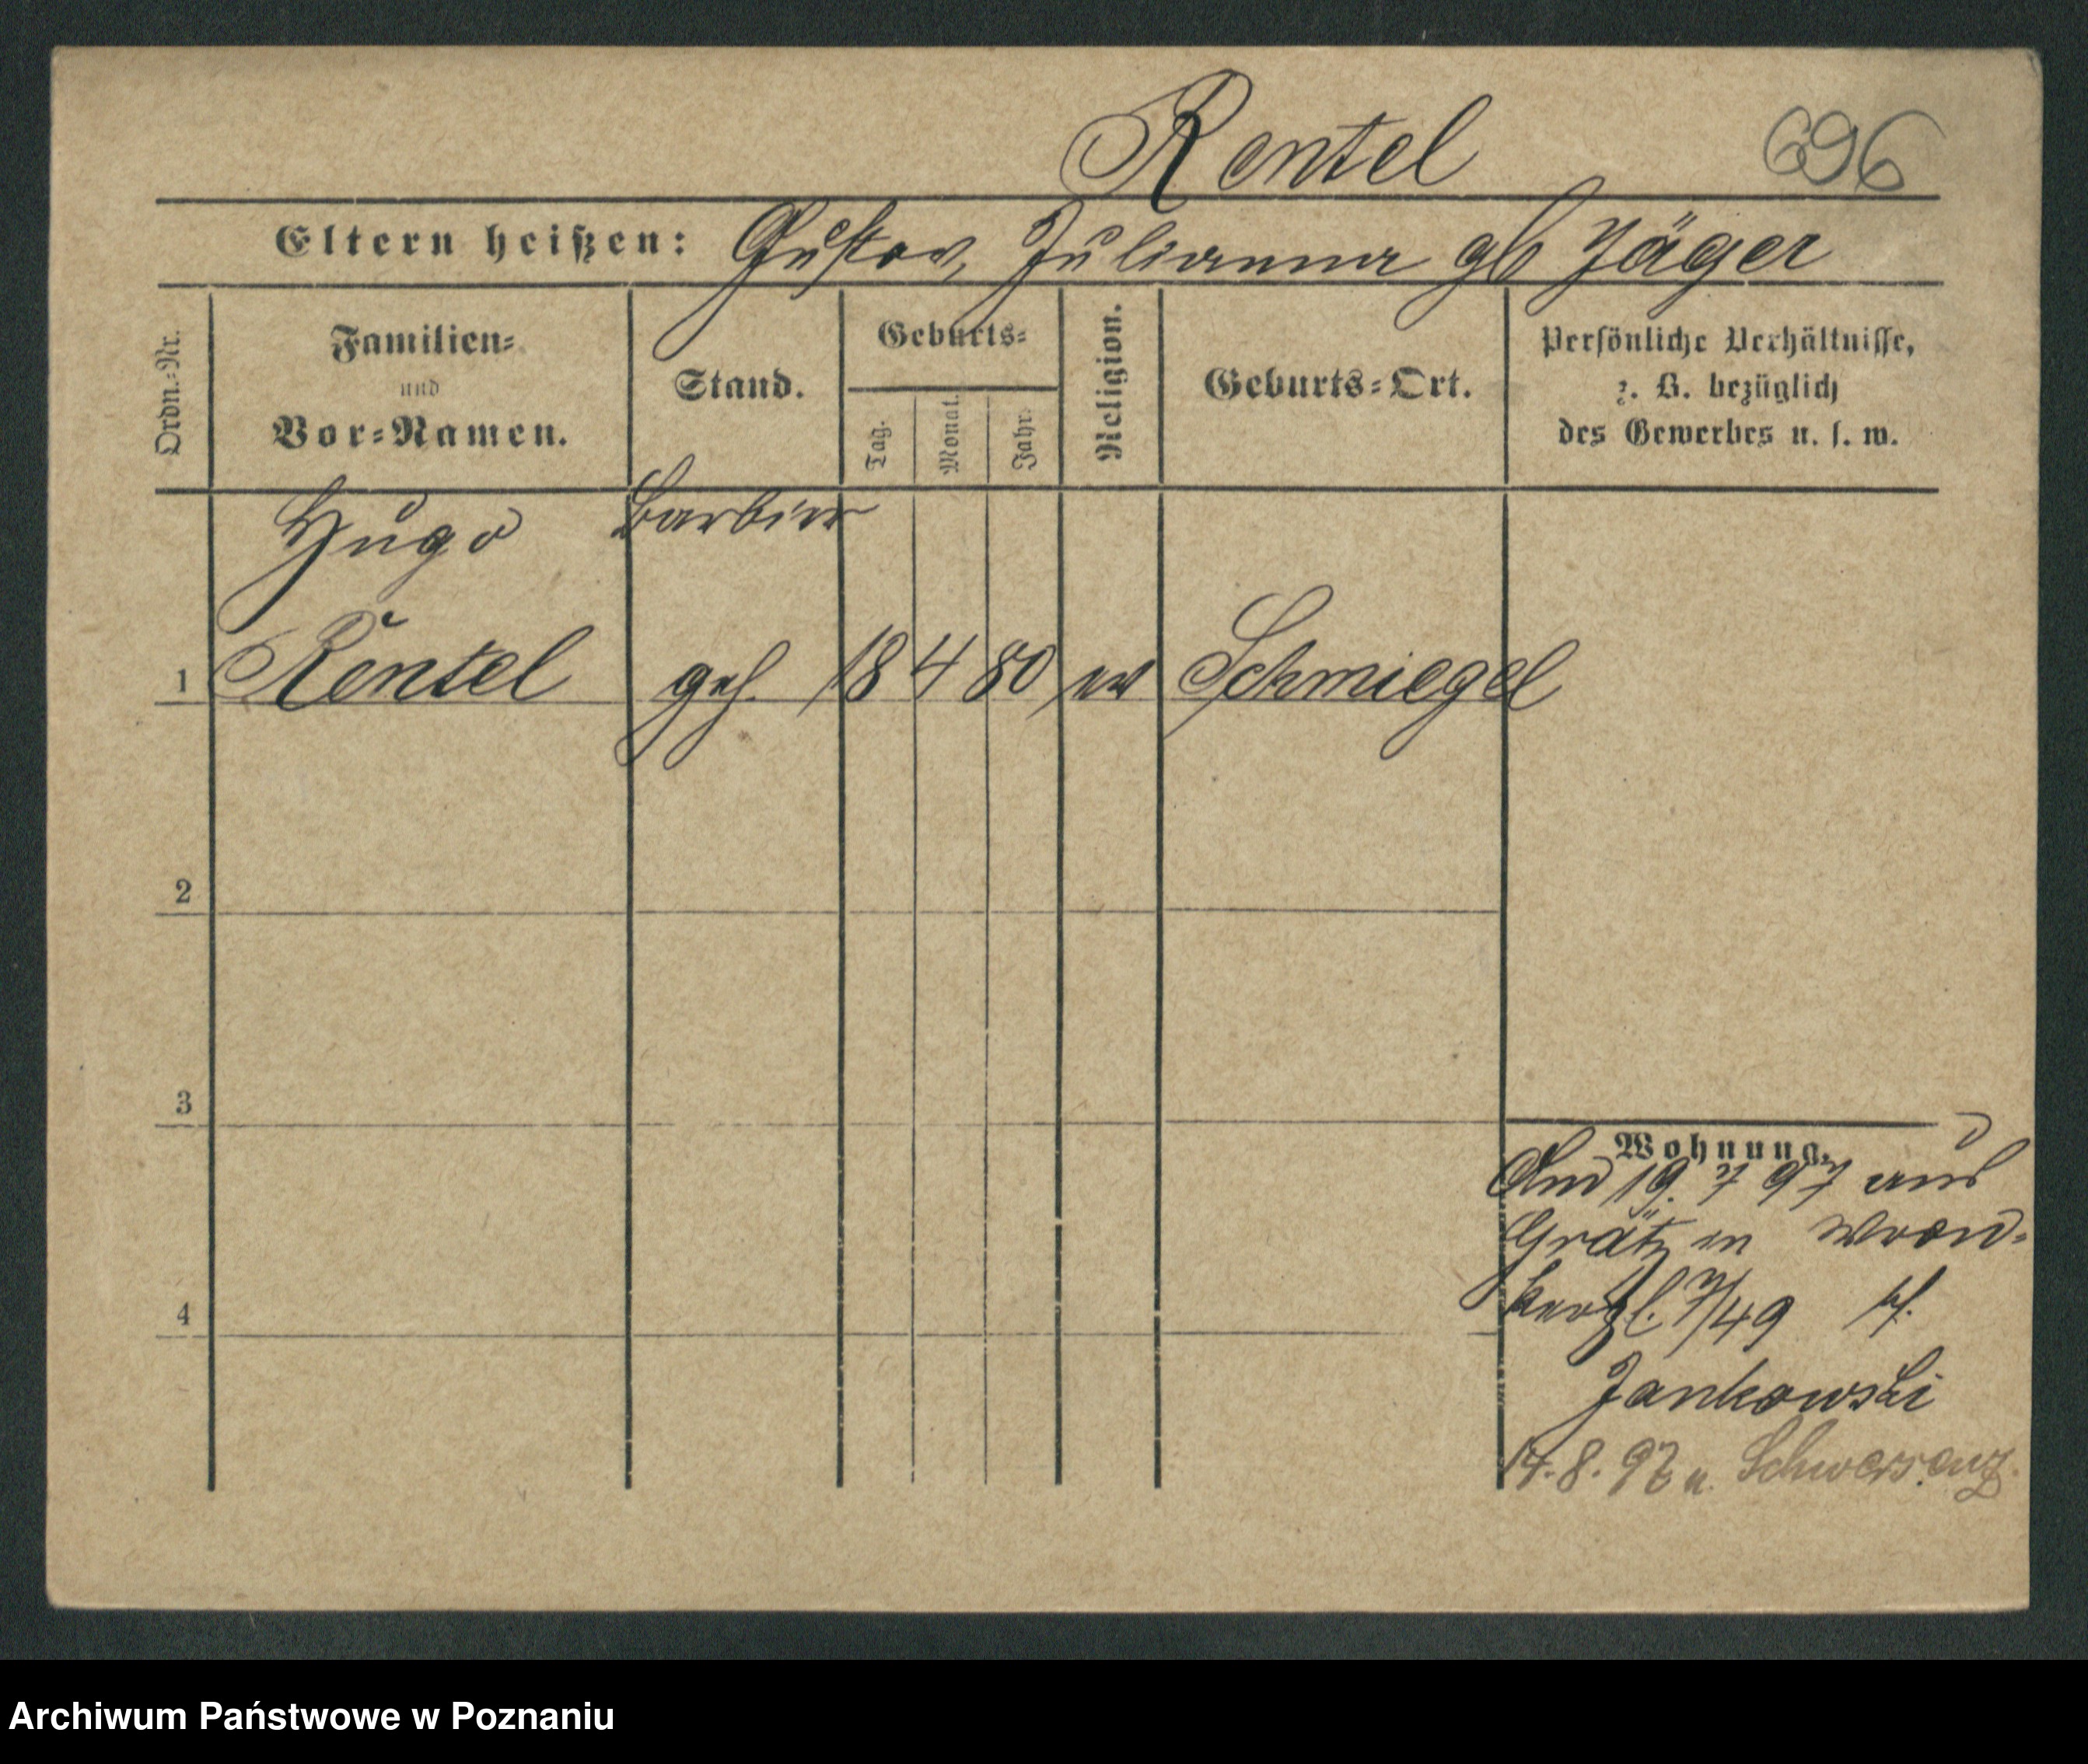 Rentel 696
Eltern heißen: Gustav, Julianna gb Jäger
Ordn.-Nr.
Familien- und Vor-Namen.
Stand.
Geburts-
Tag. Monat. Jahr.
Religion.
Geburts-Ort.
Persönliche Verhältnisse,
z. B. bezüglich
des Gewerbes u. s. w.
Hugo Barbier
1 Rentel geh. 18 4 80 ev Schmiegel
2
3
4
Wohnung.
Am 19. 7 97 aus
Grätz in Wron-
kerpl. 4/49
Jankowski
14. 8. 97 n. Schwersenz
Archiwum Państwowe w Poznaniu